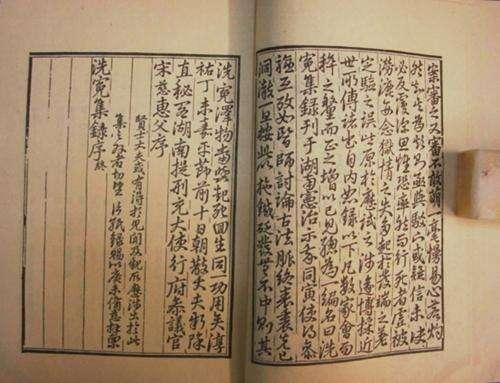 案審之又審不敢萌一毫慢易心若灼
然知其為欺則亟與駁下或疑信未決
必反覆深思惟恐率然而行死者虛被
澇漉每念獄情之失多起於發端之差
定驗之誤皆原於歷試之淺遂博採近
世所傳諸書自內恕錄以下凡數家會而
粹之釐而正之增以己見總為一編名曰洗
冤集錄刊于湖南憲治示我同寅使得參
驗互攷如醫師討論古法脈絡表裏先已
洞澈一旦按此以施鍼砭發無不中則其
洗冤澤物當與起死回生同一功用矣淳
祐丁未嘉平節前十日朝散大夫新除
直秘閣湖南提刑充大使行府參議官
宋慈惠父序
賢士大夫或有得於見聞及親所歷涉出於此
集之外者切望片紙錄賜以廣未備慈拜稟
洗冤集錄序終